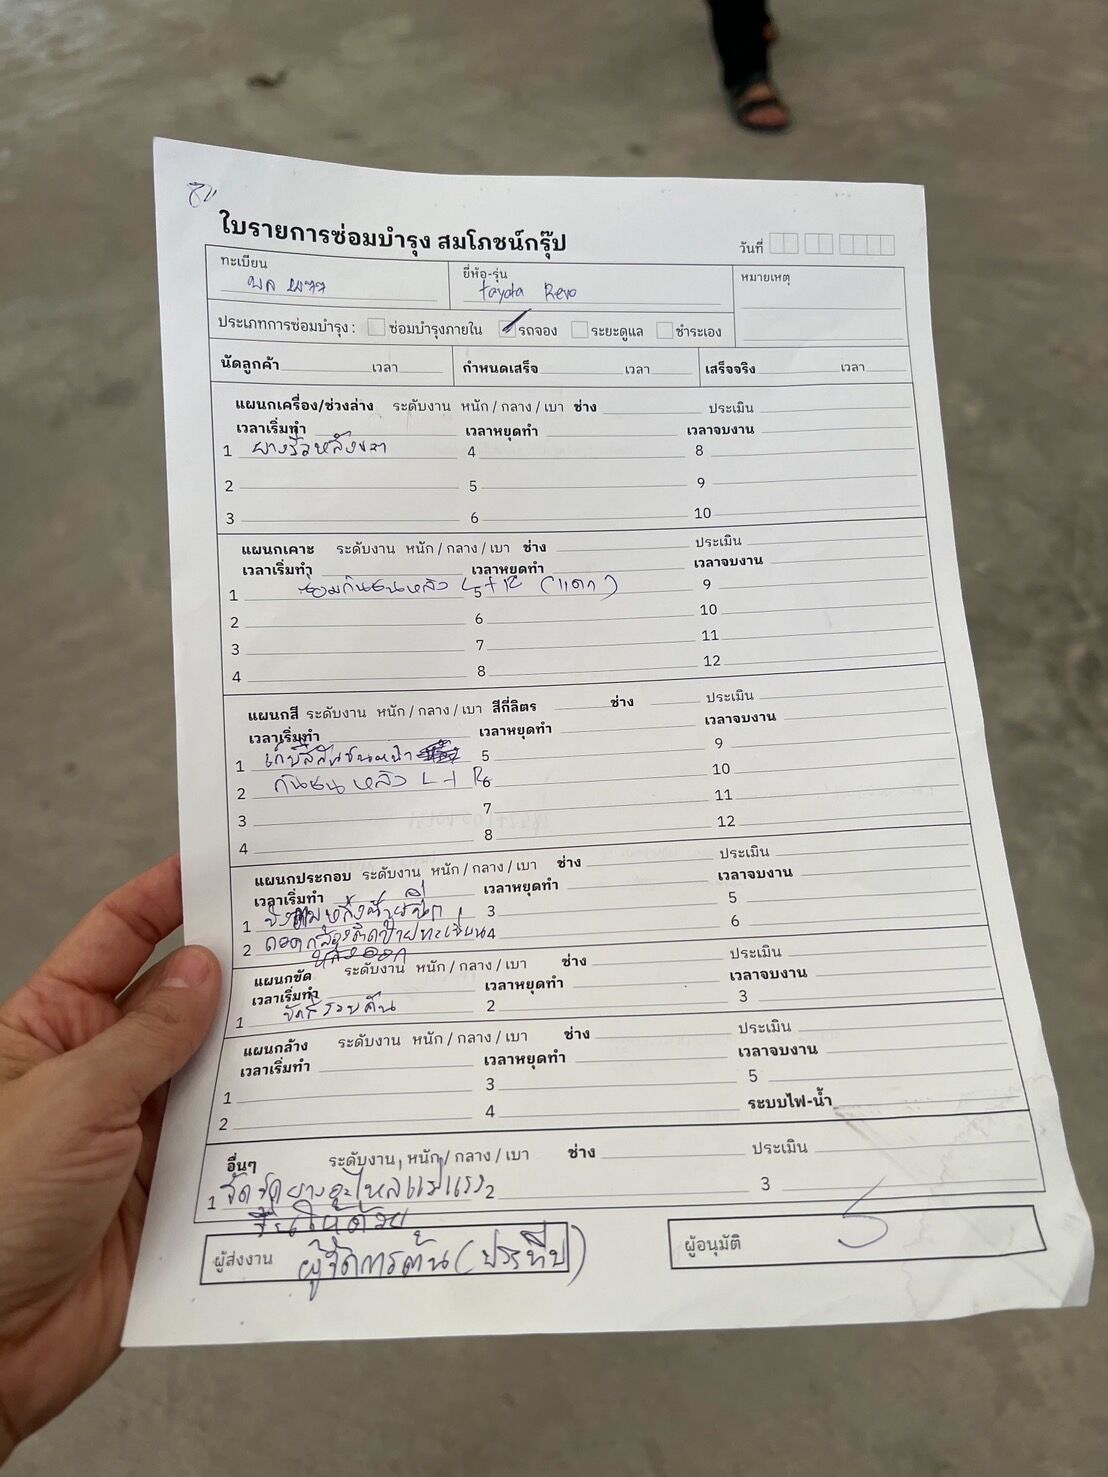 ใบรายการซ่อมบำรุง สมโภชน์กรุ๊ป
วันที่
ทะเบียน ยี่ห้อ-รุ่น หมายเหตุ
toyota Revo
ประเภทการซ่อมบำรุง : ซ่อมบำรุงภายใน รถจอง ระยะดูแล ชำระเอง
นัดลูกค้า เวลา กำหนดเสร็จ เวลา เสร็จจริง เวลา
แผนกเครื่อง/ช่วงล่าง ระดับงาน หนัก / กลาง / เบา ช่าง ประเมิน
เวลาเริ่มทำ เวลาหยุดทำ เวลาจบงาน
1 ยางรั่วหลังขวา 4 8
2 5 9
3 6 10
แผนกเคาะ ระดับงาน หนัก / กลาง / เบา ช่าง ประเมิน
เวลาเริ่มทำ เวลาหยุดทำ เวลาจบงาน
1 ซ่อมกันชนหลัง L+R (แตก) 5 9
2 6 10
3 7 11
4 8 12
แผนกสี ระดับงาน หนัก / กลาง / เบา สีกี่ลิตร ช่าง ประเมิน
เวลาเริ่มทำ เวลาหยุดทำ เวลาจบงาน
1 เก็บสีกันชนหน้า 5 9
2 กันชนหลัง L+R 6 10
3 7 11
4 8 12
แผนกประกอบ ระดับงาน หนัก / กลาง / เบา ช่าง ประเมิน
เวลาเริ่มทำ เวลาหยุดทำ เวลาจบงาน
1 3 5
2 ถอดกล่องติดป้ายทะเบียน 4 6
หลังออก
แผนกขัด ระดับงาน หนัก / กลาง / เบา ช่าง ประเมิน
เวลาเริ่มทำ เวลาหยุดทำ เวลาจบงาน
1 ขัดสีรอบคัน 2 3
แผนกล้าง ระดับงาน หนัก / กลาง / เบา ช่าง ประเมิน
เวลาเริ่มทำ เวลาหยุดทำ เวลาจบงาน
1 3 5
2 4 ระบบไฟ-น้ำ
อื่นๆ ระดับงาน หนัก / กลาง / เบา ช่าง ประเมิน
1 จัดชุดยางอะไหล่แม่แรง 2 3
ให้ด้วย
ผู้ส่งงาน ผู้จัดการต้น (ประทีป) ผู้อนุมัติ